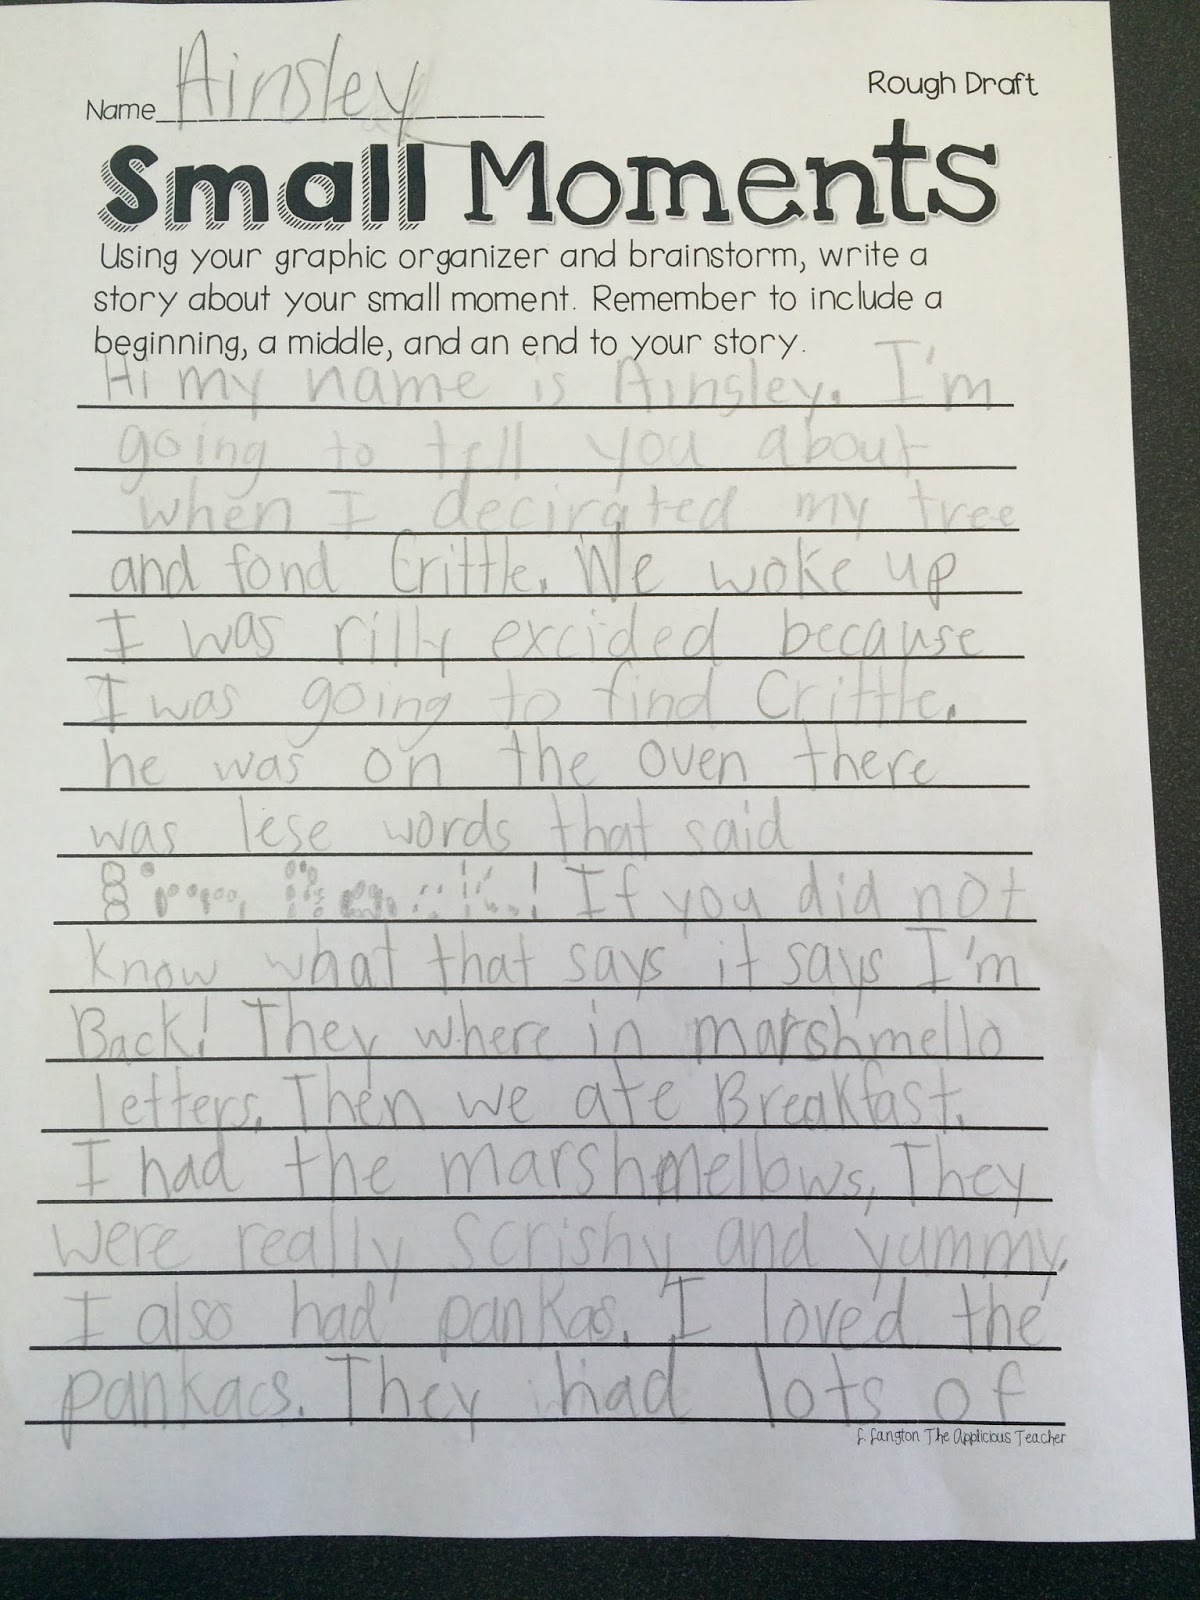 Rough Draft
Name Ainsley
Small Moments
Using your graphic organizer and brainstorm, write a
story about your small moment. Remember to include a
beginning, a middle, and an end to your story.
Hi my name is Ainsley. I'm
going to tell you about
when I decirated my tree
and fond Crittle. We woke up
I was rilly excided because
I was going to find Crittle.
he was on the oven there
was lese words that said
I'm Back! If you did not
know what that says it says I'm
Back! They where in marshmello
letters. Then we ate Breakfast.
I had the marshmellows, They
were really scrishy and yummy.
I also had pankas. I loved the
pankacs. They had lots of
F. Langton The Applicious Teacher